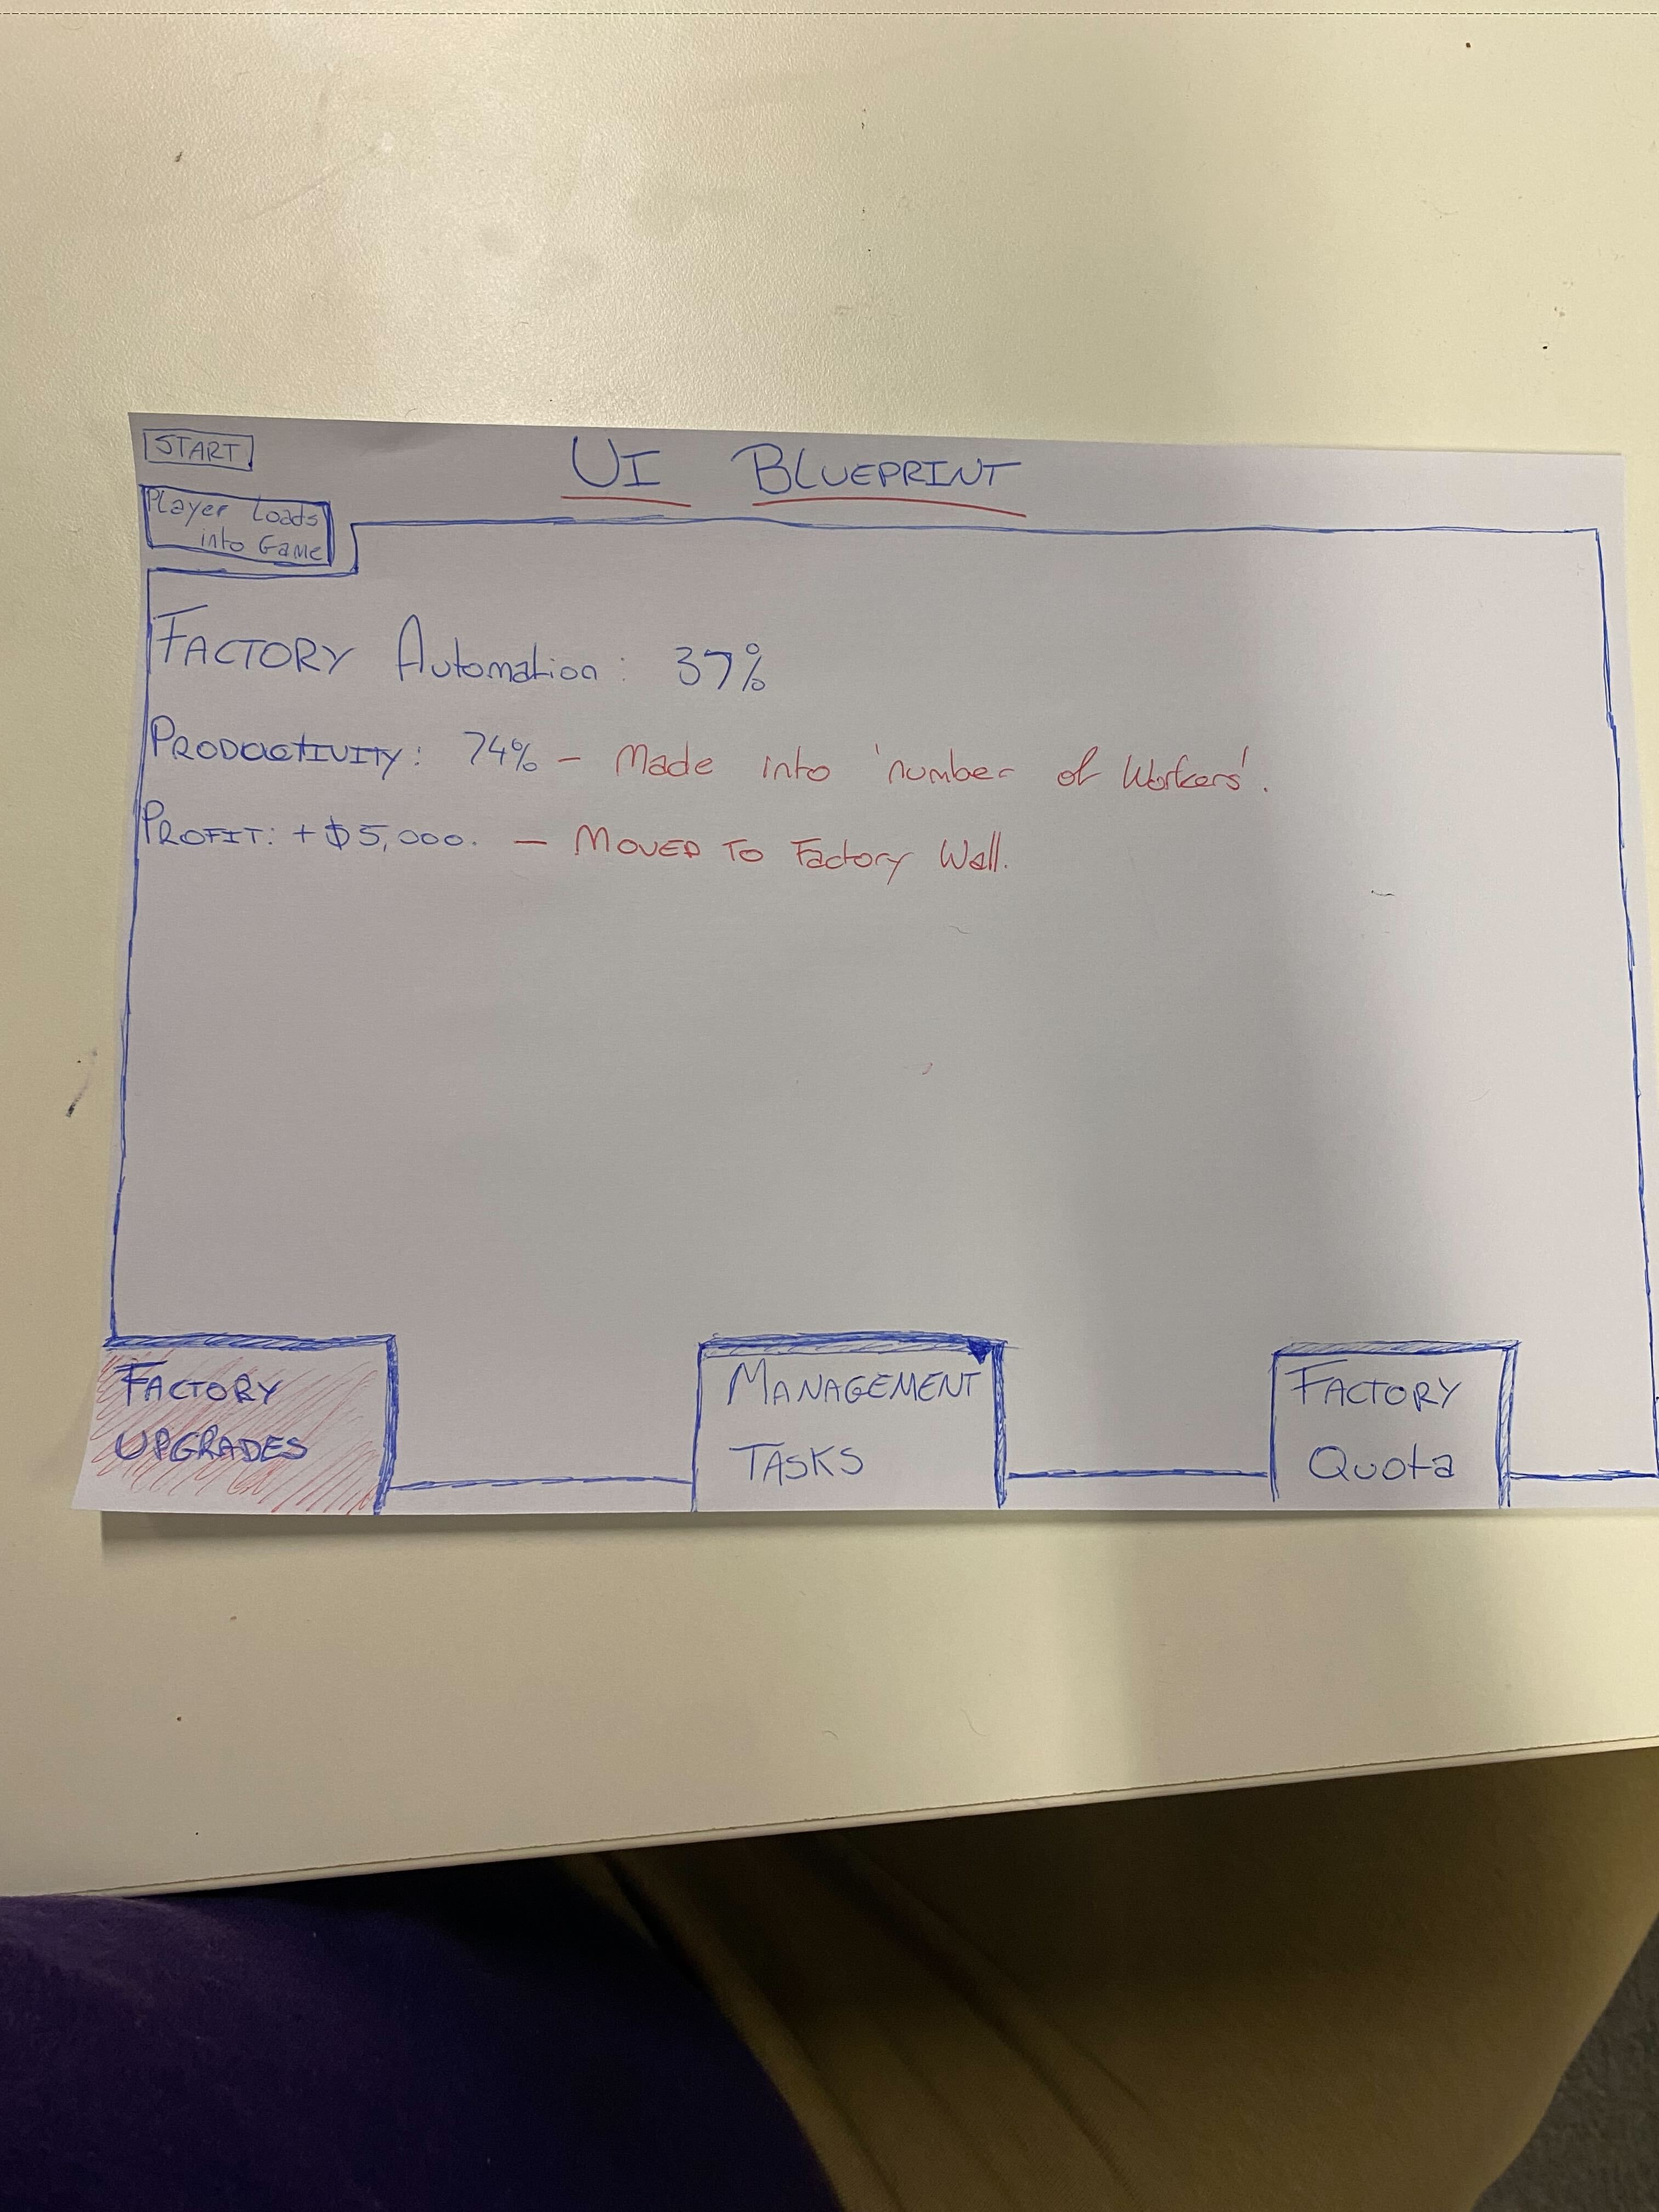 START
UI BLUEPRINT
Player Loads
into Game
FACTORY Automation: 37%
PRODUCtIVITY: 74% – Made into 'number of Workers'.
PROFIT: +$5,000. – MOVED TO Factory Wall.
FACTORY
UPGRADES
MANAGEMENT
TASKS
FACTORY
Quota